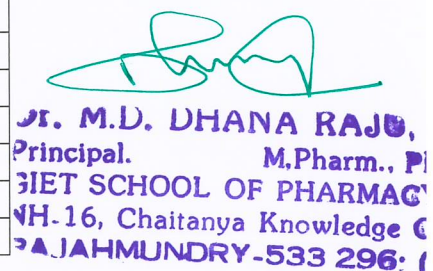 Dr. M.D. DHANA RAJU,
Principal. M.Pharm., P
GIET SCHOOL OF PHARMAC
NH-16, Chaitanya Knowledge C
RAJAHMUNDRY-533 296; (